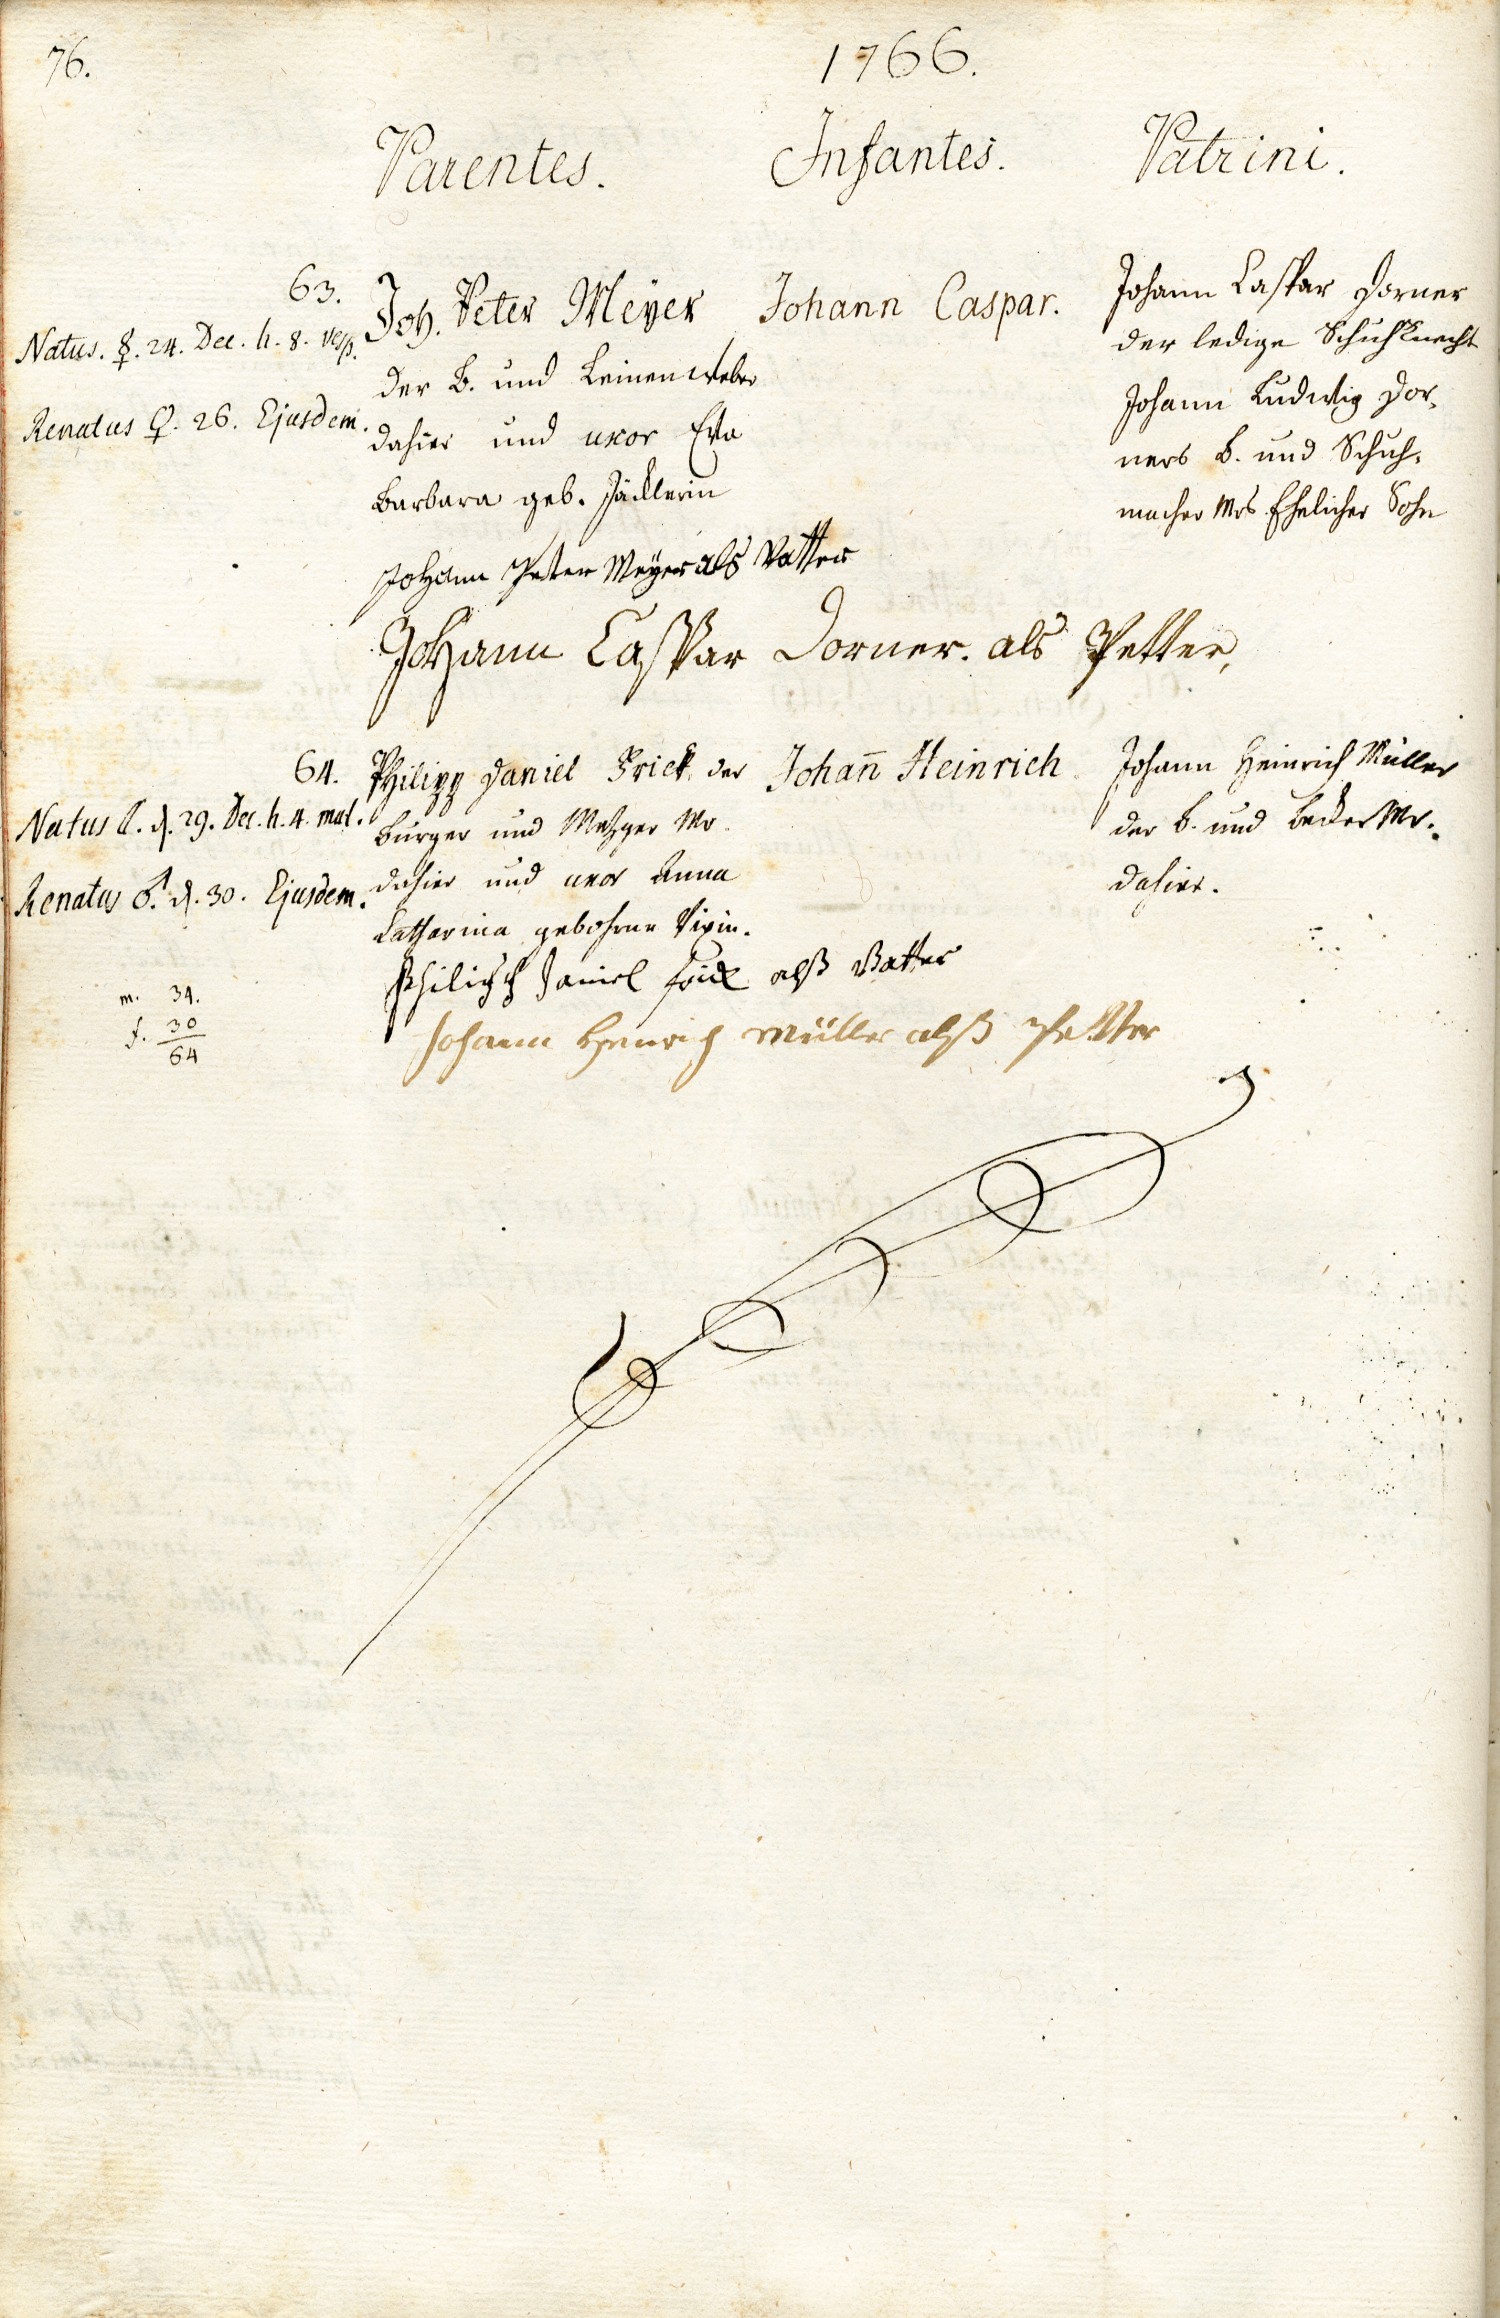 76.
1766.
Parentes.
Infantes.
Patrini.
63.
Natus. ☿. 24. Dec. h. 8. vesp.
Renatus ♀. 26. Ejusdem.
Joh. Peter Meÿer
der B. und Leinenweber
dahier und uxor Eva
Barbara geb. Jäcklerin
Johann Caspar.
Johann Caspar Dorner
der ledige Schuhknecht
Johann Ludwig Dor-
ners B. und Schuh-
macher Mrs Ehelicher Sohn
Johann Peter Meÿer als Vatter
Johann Caspar Dorner. als Petter,
64.
Natus ☾. d. 29. Dec. h. 4. mat.
Renatus ♂. d. 30. Ejusdem.
Philipp Daniel Frick der
Burger und Mezger Mr.
dahier und uxor Anna
Catharina gebohrne
Johan̅ Heinrich
Johann Heinrich Müller
der B. und Becker Mr.
dahier.
Daniel Frick alß Vatter
Johann Henrich Müller alß Petter
m. 34.
f. 30
64